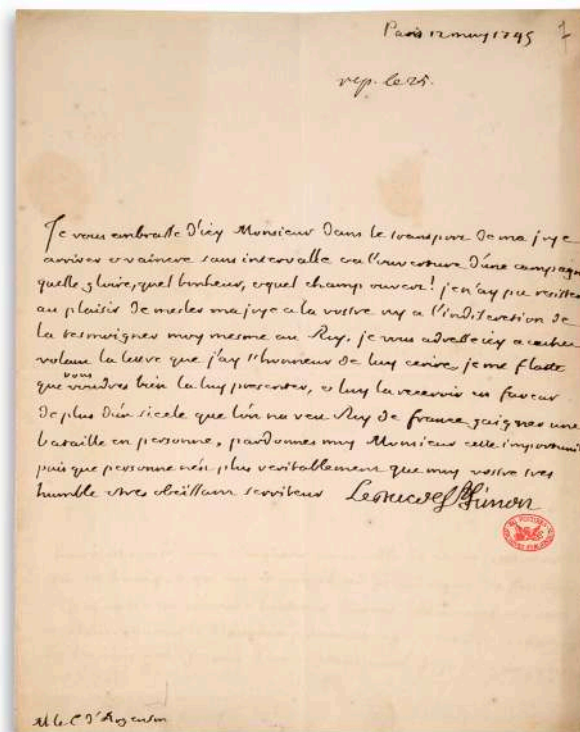 Paris 12 may 1745
7
rep. le 25.
Je vous embrasse d'icy Monsieur dans le transport de ma joye
arriver & vaincre sans intervalle & a l'ouverture d'une campagne
quelle gloire, quel bonheur, & quel champ ouvert! je n'ay pu resister
au plaisir de mesler ma joye a la vostre ny a l'indiscretion de
la tesmoigner moy mesme au Roy. je vous adresse icy a cachet
volant la lettre que j'ay l'honneur de luy ecrire, je me flatte
que vous voudres bien la luy presenter, & luy la recevoir en faveur
de plus d'un siecle que l'on na veu Roy de france gaigner une
bataille en personne, pardonnes moy Monsieur cette importunité
puis que personne n'est plus veritablement que moy vostre tres
humble & tres obeissant serviteur Le duc de St Simon
M le C d'Argenson